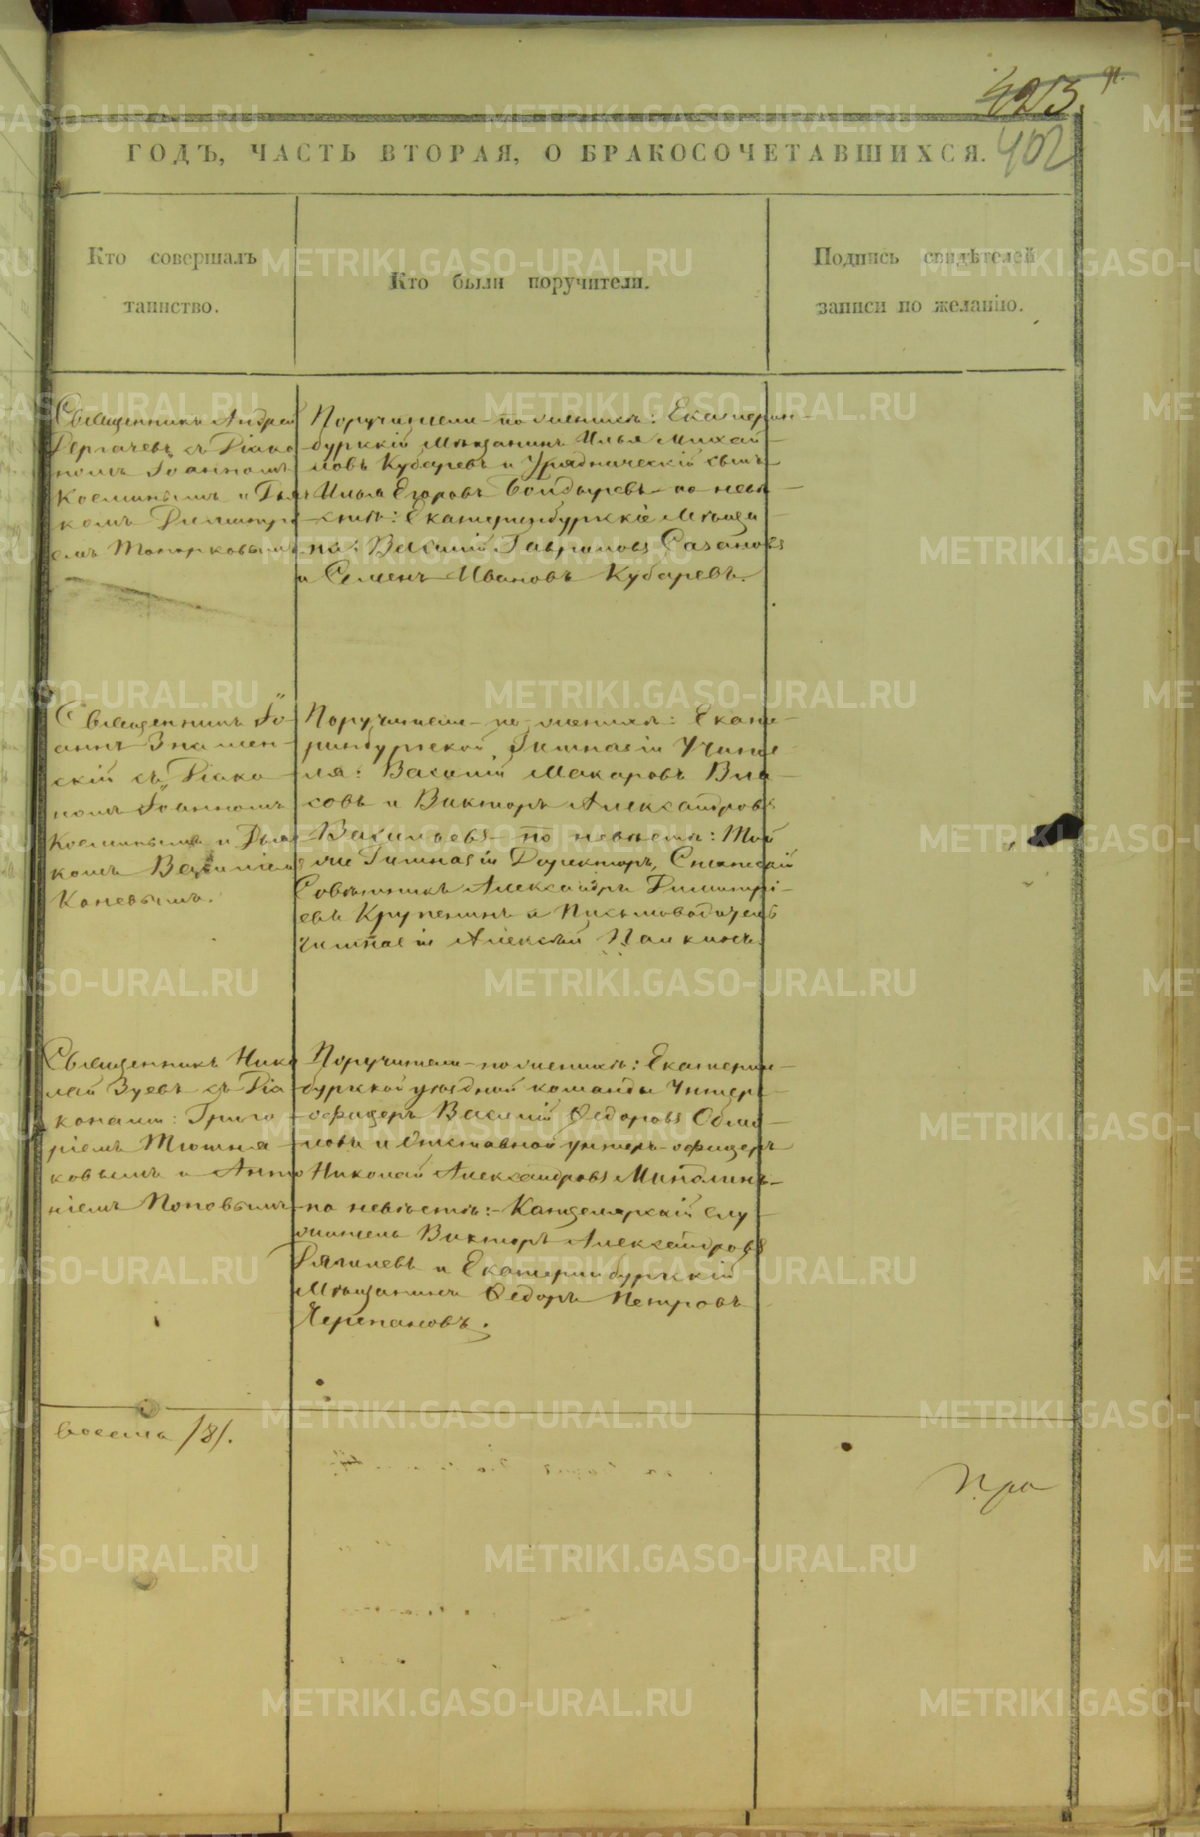 423
402
ГОДЪ, ЧАСТЬ ВТОРАЯ, О БРАКОСОЧЕТАВШИХСЯ.
Кто совершалъ
таинство.
Кто были поручители.
Подпись свидѣтелей
записи по желанію.
Священникъ Андрей
Дергачевъ съ Діако
номъ Іоанномъ
Космишнымъ и Дья
комъ Димитрі
емъ Топорковымъ
Поручители по женихѣ: Екатерин
бургскій Мѣщанинъ Илья Михай
ловъ Кубаревъ и Урядническій сынъ
Илья Егоровъ Болдыревъ по невѣ
стѣ: Екатеринбургскіе Мѣща
не: Василій Гавриловъ Сазановъ
и Семенъ Ивановъ Кубаревъ.
Священникъ Іо
аннъ Знамен
скій съ Діако
номъ Іоанномъ
и Дья
комъ Василіемъ
Каневымъ.
Поручители по женихѣ: Екате
ринбургской Гимназіи Учите
ля: Василій Макаровъ Вла
совъ и Викторъ Александровъ
Васильевъ по невѣстѣ: Той
же Гимназіи Директоръ, Статскій
Совѣтникъ Александръ Димитрі
евъ Крупенинъ и Письмоводитель
Гимназіи Алексѣй
Священникъ Нико
лай Зуевъ съ Діа
конами: Григо
ріемъ Тюшня
ковымъ и Анто
ніемъ Поповымъ
Поручители по женихѣ: Екатерин
бургской уѣздной команды Унтеръ
офицеръ Василій Ѳедоровъ
и Отставной унтеръ-офицеръ
Николай Александровъ
по невѣстѣ: Канцелярскій слу
житель Викторъ Александровъ
Дягилевъ и Екатеринбургскій
Мѣщанинъ Ѳедоръ Петровъ
Черепановъ.
восемь /8/.
Про
METRIKI.GASO-URAL.RU